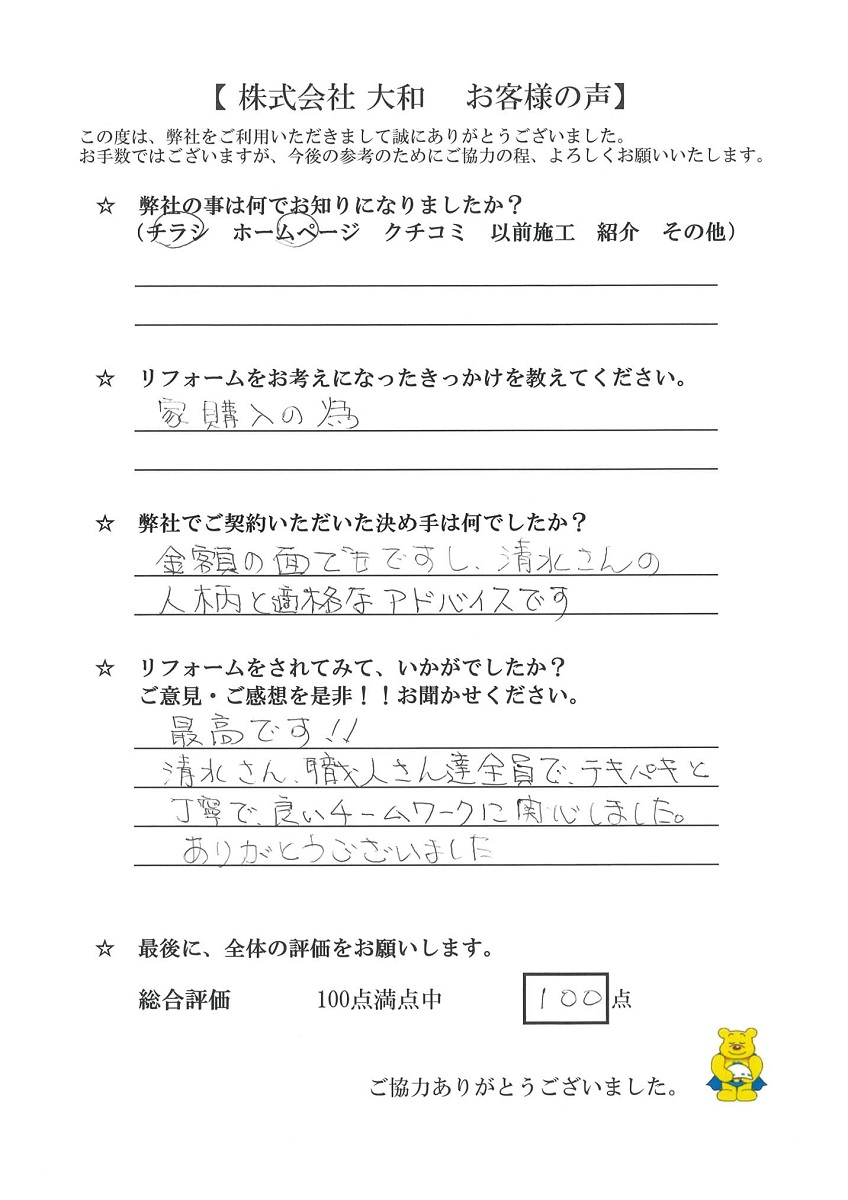 【 株式会社 大和　お客様の声】
この度は、弊社をご利用いただきまして誠にありがとうございました。
お手数ではございますが、今後の参考のためにご協力の程、よろしくお願いいたします。
☆　弊社の事は何でお知りになりましたか？
（チラシ　ホームページ　クチコミ　以前施工　紹介　その他）
☆　リフォームをお考えになったきっかけを教えてください。
家購入の為
☆　弊社でご契約いただいた決め手は何でしたか？
金額の面でもですし、清水さんの
人柄と適格なアドバイスです
☆　リフォームをされてみて、いかがでしたか？
ご意見・ご感想を是非！！お聞かせください。
最高です!!
清水さん、職人さん達全員で、テキパキと
丁寧で、良いチームワークに関心しました。
ありがとうございました
☆　最後に、全体の評価をお願いします。
総合評価　100点満点中　100点
ご協力ありがとうございました。